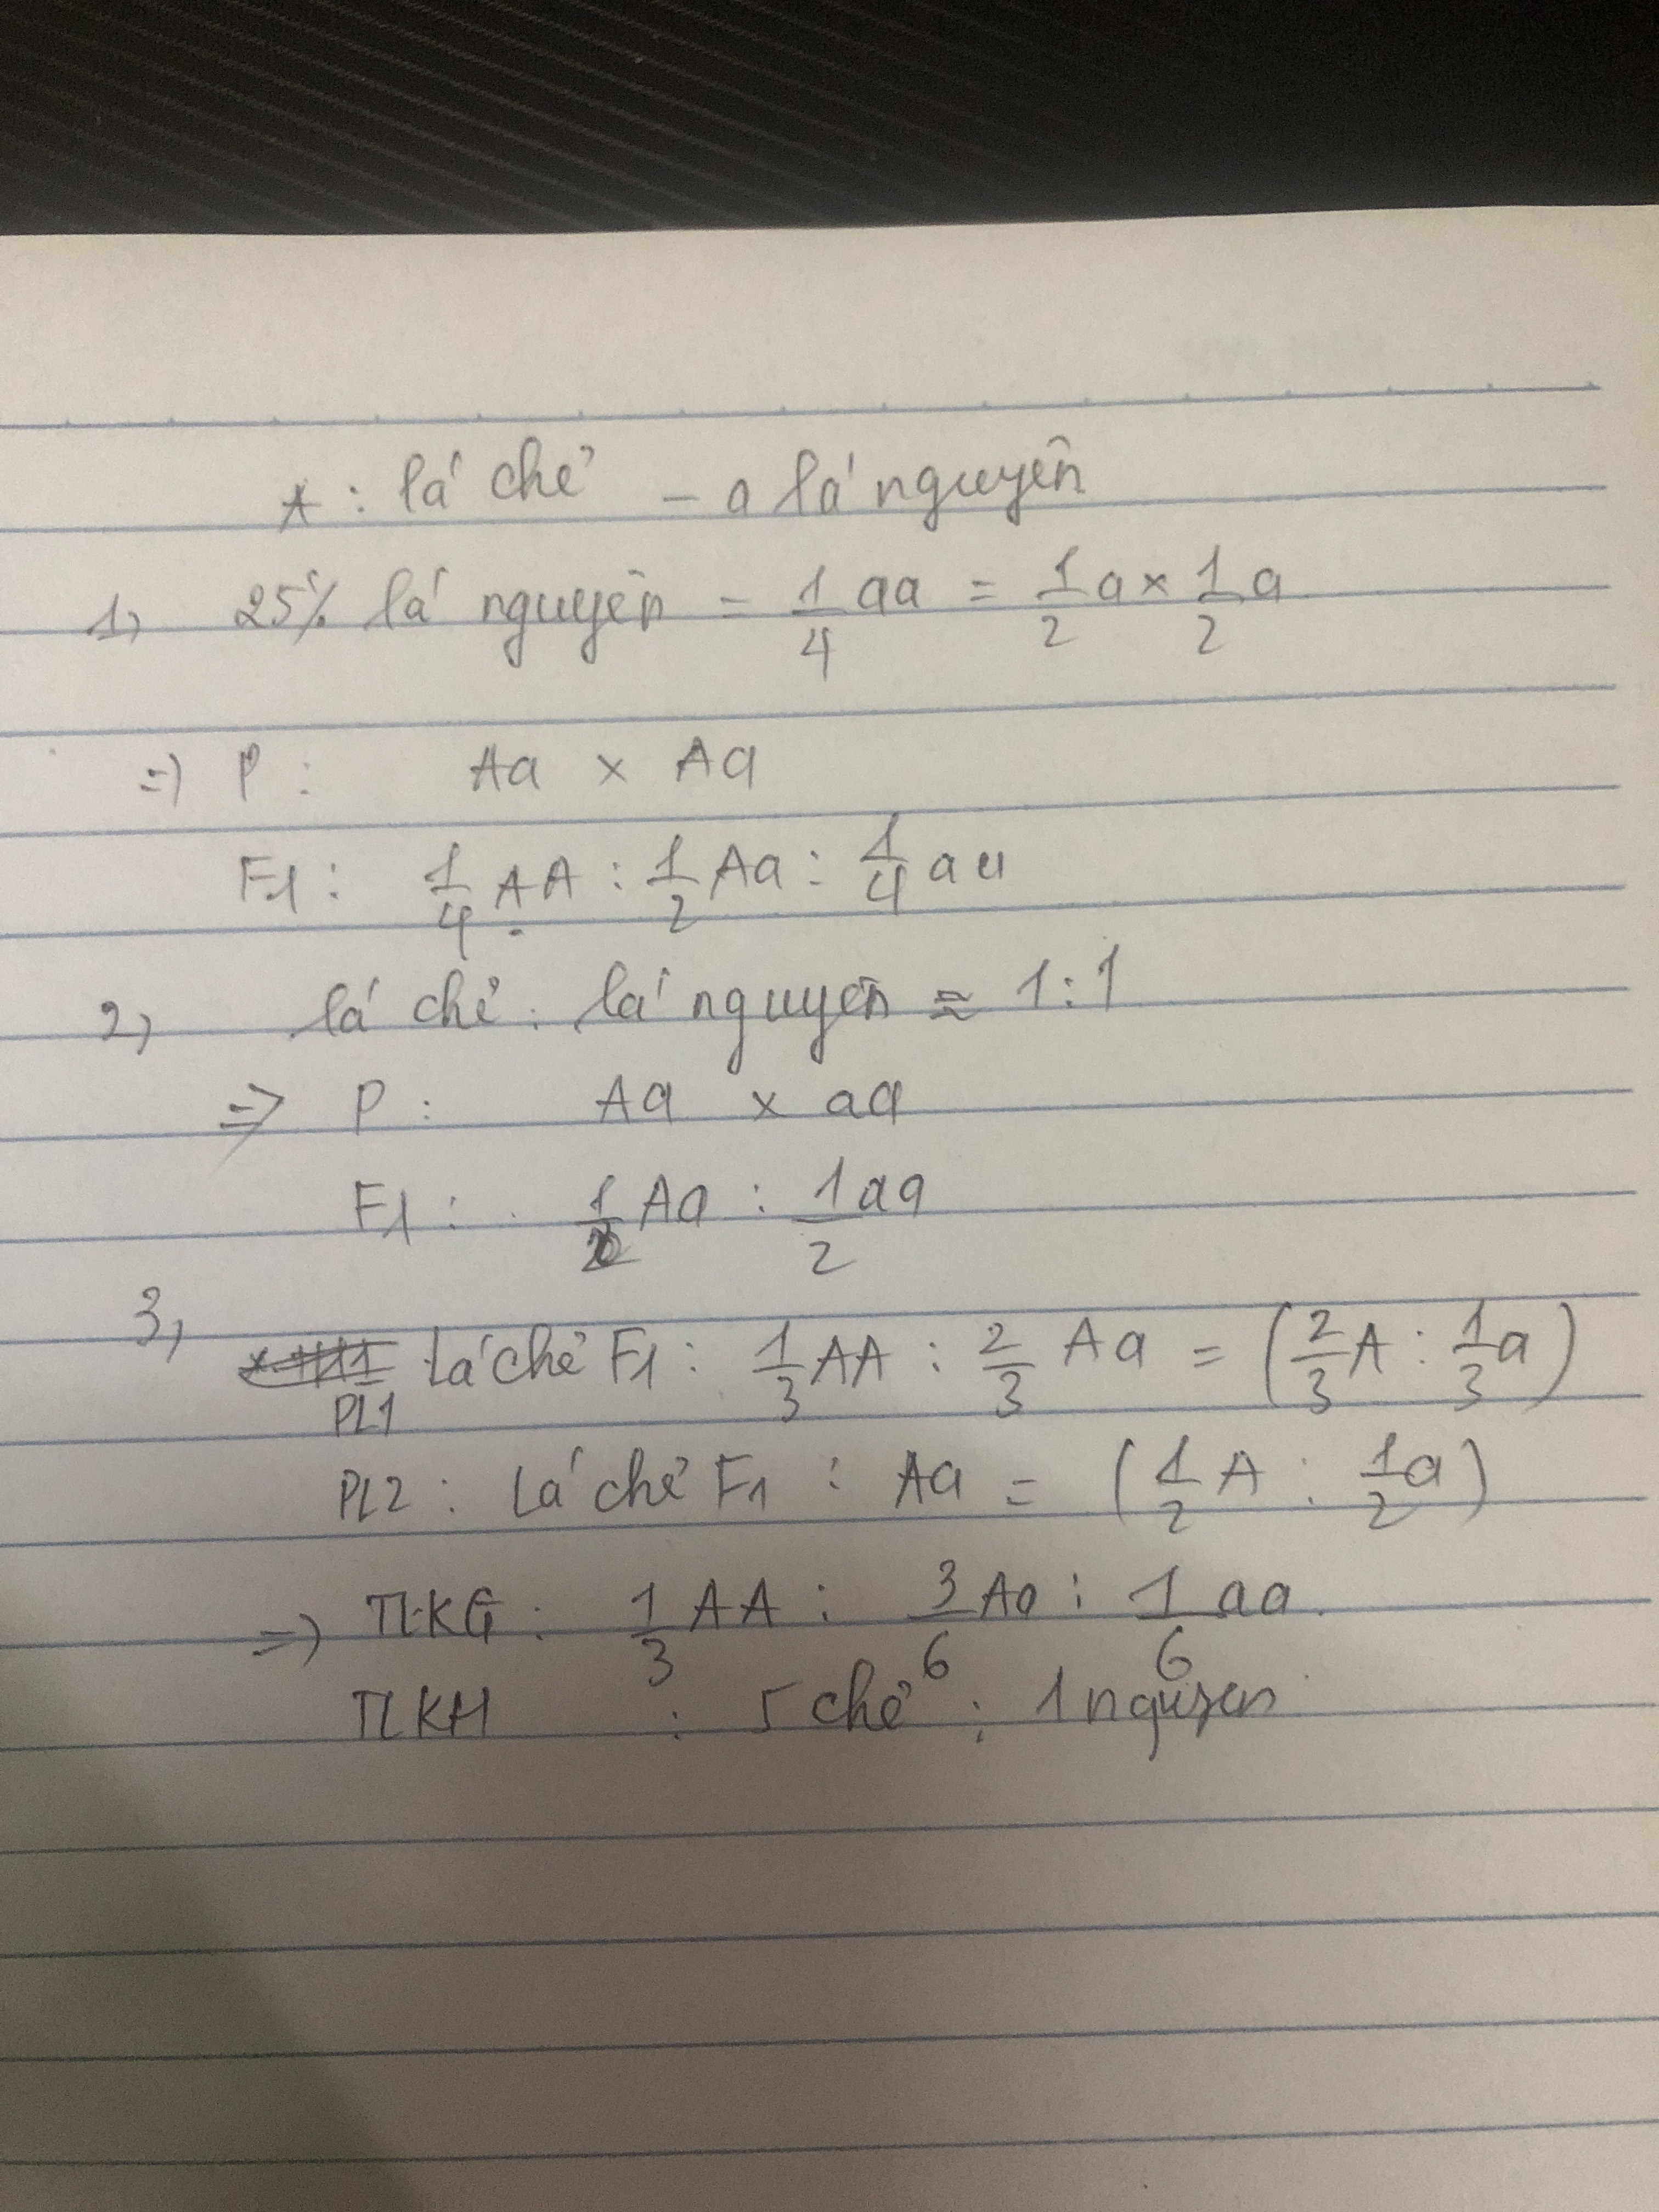 A : lá chẻ - a lá nguyên
1, 25% lá nguyên = 1/4 aa = 1/2 a x 1/2 a
=> P : Aa x Aa
F1 : 1/4 AA : 1/2 Aa : 1/4 aa
2, lá chẻ : lá nguyên ≈ 1:1
=> P : Aa x aa
F1 : 1/2 Aa : 1/2 aa
3, PL1 Lá chẻ F1 : 1/3 AA : 2/3 Aa = (2/3 A : 1/3 a)
PL2 : Lá chẻ F1 : Aa = (1/2 A : 1/2 a)
=> TLKG : 1/3 AA : 3/6 Aa : 1/6 aa.
TLKH : 5 chẻ : 1 nguyen